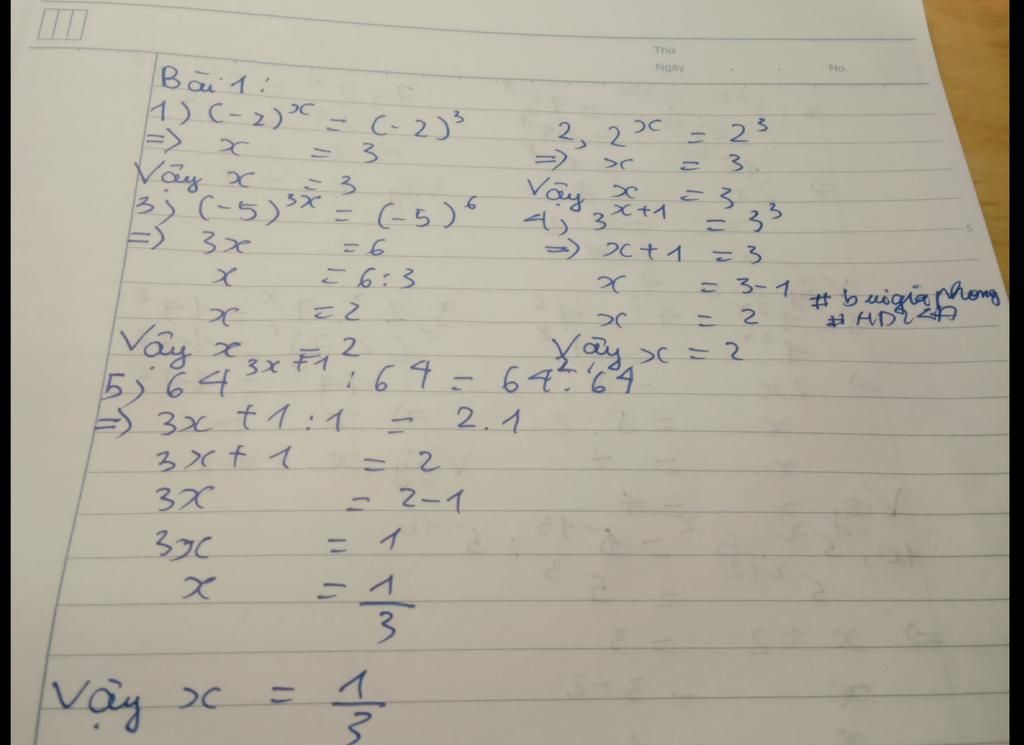 Thứ
Ngày . . No.
Bài 1:
1) (-2)^x = (-2)^3
=> x = 3
Vậy x = 3
2, 2^x = 2^3
=> x = 3.
Vậy x = 3
3) (-5)^3x = (-5)^6
=> 3x = 6
x = 6:3
x = 2
Vậy x = 2
4) 3^x+1 = 3^3
=> x+1 = 3
x = 3-1
x = 2
Vậy x = 2
# buigiaphong
5) 64^3x+1 : 64 = 64^2 : 64
=> 3x + 1 : 1 = 2.1
3x + 1 = 2
3x = 2-1
3x = 1
x = 1/3
Vậy x = 1/3